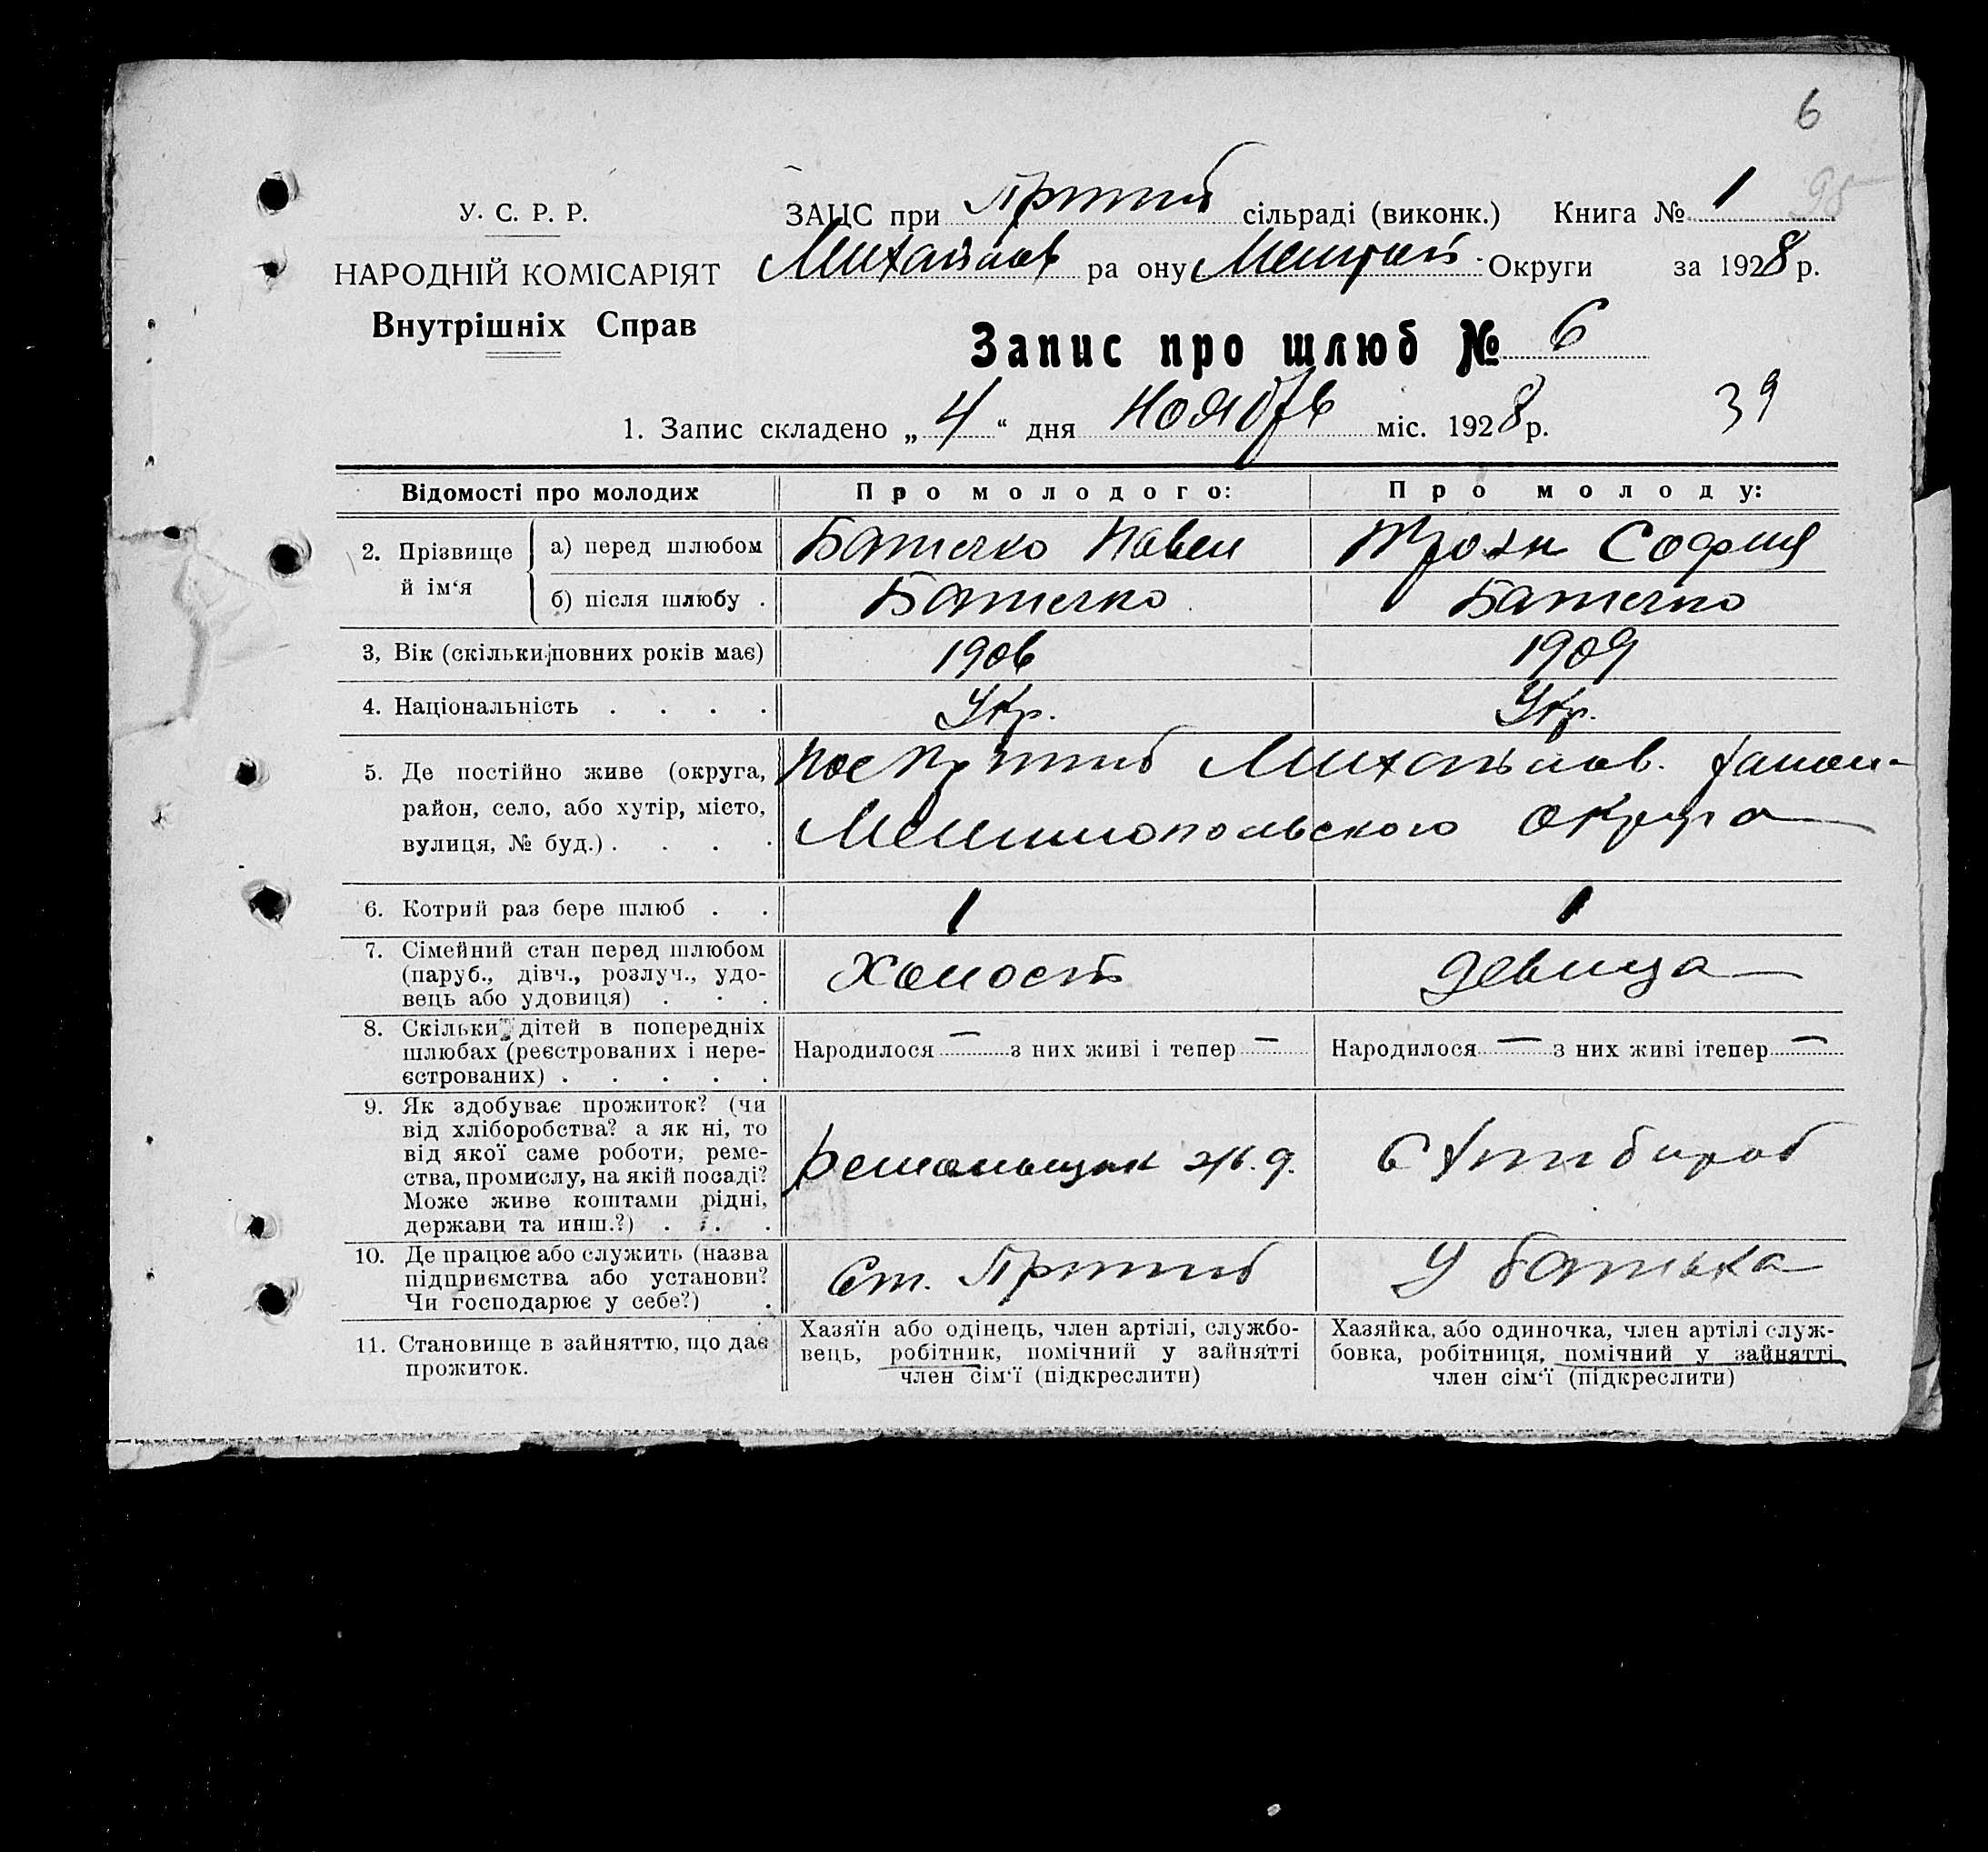 6
У. С. Р. Р.
ЗАЦС при Пришиб сільраді (виконк.) Книга № 1 95
НАРОДНІЙ КОМІСАРІЯТ
Михайлов ра ону Округи за 1928 р.
Внутрішніх Справ
Запис про шлюб № 6
1. Запис складено „ 4 “ дня Ноября міс. 1928 р. 39
Відомості про молодих Про молодого: Про молоду:
2. Прізвище й ім‘я
а) перед шлюбом Павел София
б) після шлюбу .
3, Вік (скільки повних років має) 1906 1909
4. Національність . . . . Укр. Укр.
5. Де постійно живе (округа, пос Пришиб Михайлов. район-
район, село, або хутір, місто,
Мелитопольского округа
вулиця, № буд.) . . . .
6. Котрий раз бере шлюб . . 1 1
7. Сімейний стан перед шлюбом
(паруб., дівч., розлуч., удо- Холост девица
вець або удовиця) . . .
8. Скільки дітей в попередніх
шлюбах (реєстрованих і нере- Народилося — з них живі і тепер — Народилося — з них живі ітепер —
єстрованих) . . . . .
9. Як здобуває прожиток? (чи
від хліборобства? а як ні, то
від якої саме роботи, реме-
ства, промислу, на якій посаді?
Може живе коштами рідні,
держави та инш.?) . . .
10. Де працює або служить (назва
підприємства або установи? ст. Пришиб у батька
Чи господарює у себе?) .
11. Становище в зайняттю, що дає
прожиток.
Хазяїн або одінець, член артілі, службо-
вець, робітник, помічний у зайнятті
член сім‘ї (підкреслити)
Хазяйка, або одиночка, член артілі служ-
бовка, робітниця, помічний у зайнятті
член сім‘ї (підкреслити)